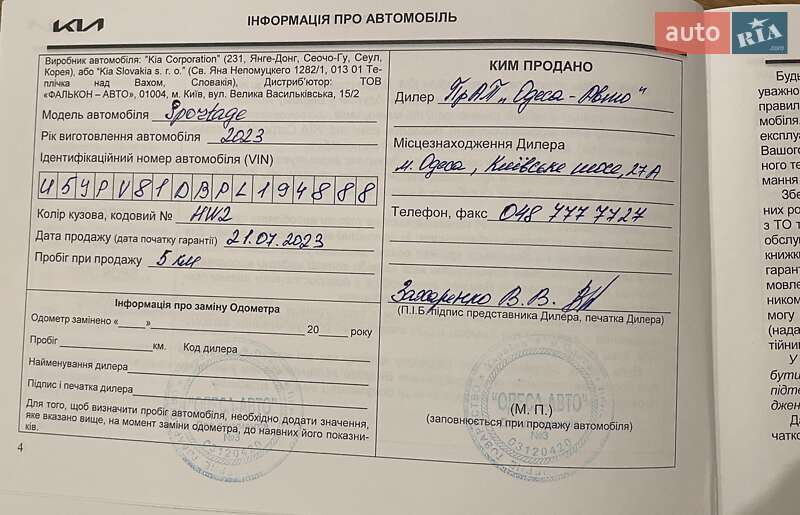 KIA
ІНФОРМАЦІЯ ПРО АВТОМОБІЛЬ
auto RIA
Виробник автомобіля: "Kia Corporation" (231, Янге-Донг, Сеочо-Гу, Сеул,
Корея), або "Kia Slovakia s. r. o." (Св. Яна Непомуцкого 1282/1, 013 01 Те-
плічка над Вахом, Словакія), Дистриб'ютор: ТОВ
«ФАЛЬКОН – АВТО», 01004, м. Київ, вул. Велика Васильківська, 15/2
Модель автомобіля Sportage
Рік виготовлення автомобіля 2023
Ідентифікаційний номер автомобіля (VIN)
U5YPV81DBPL194888
Колір кузова, кодовий № HW2
Дата продажу (дата початку гарантії) 21.07.2023
Пробіг при продажу 5 км
Інформація про заміну Одометра
Одометр замінено «_____» 20 року
Пробіг км. Код дилера
Найменування дилера
Підпис і печатка дилера
Для того, щоб визначити пробіг автомобіля, необхідно додати значення,
яке вказано вище, на момент заміни одометра, до наявних його показни-
ків.
4
КИМ ПРОДАНО
Дилер ПрАТ „Одеса-Авто"
Місцезнаходження Дилера
м. Одеса, Київське шосе, 27А
Телефон, факс 048 777 7727
Захаренко В. В.
(П.І.Б. підпис представника Дилера, печатка Дилера)
"ОДЕСА АВТО"
№3
03120420
"ОДЕСА АВТО"
(М. П.)
№3
(заповнюється при продажу автомобіля)
03120420
Будь
уважно
правил
мобіля
експлу
Вашого
ного те
мання
Збе
них ро
з ТО т
обслу
книжк
гарант
мовле
ником
могу
(нада
тійни
У
бути
підте
джен
Да
чатко